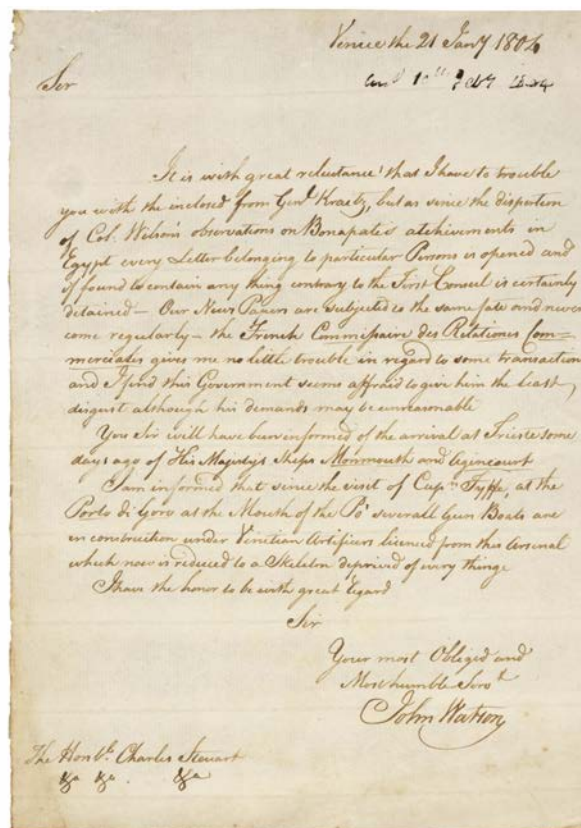 Venice the 21 Jany 1804
Sir
It is with great reluctance that I have to trouble
you with the inclosed from Genl. Kraetz, but as since the dispertion
of Col. Wilson's observations on Bonapate's atchivements in
Egypt every Letter belonging to particular Persons is opened and
if found to contain any thing contrary to the First Consul is certainly
detained – Our News Papers are subjected to the same fate and never
come regularly – the French Commissaire des Relationes Com=
=merciales gives me no little trouble in regard to some transaction
and I find this Government seems affraid to give him the least
disgust although his demands may be unreasonable
You Sir will have been informed of the arrival at Trieste some
days ago of His Majestys Ships Monmouth and Agincourt
I am informed that since the visit of Capn. Fyffe, at the
Porto di Goro at the Mouth of the Po' severall Gun Boats are
in construction under Venetian Artificers licenced from this Arsenal
which now is reduced to a Skeleton deprived of every thinge
I have the honor to be with great Egard
Sir
Your most Obliged and
Most humble Servt
John Watson
The Honble. Charles Steuart
&a &a. &a